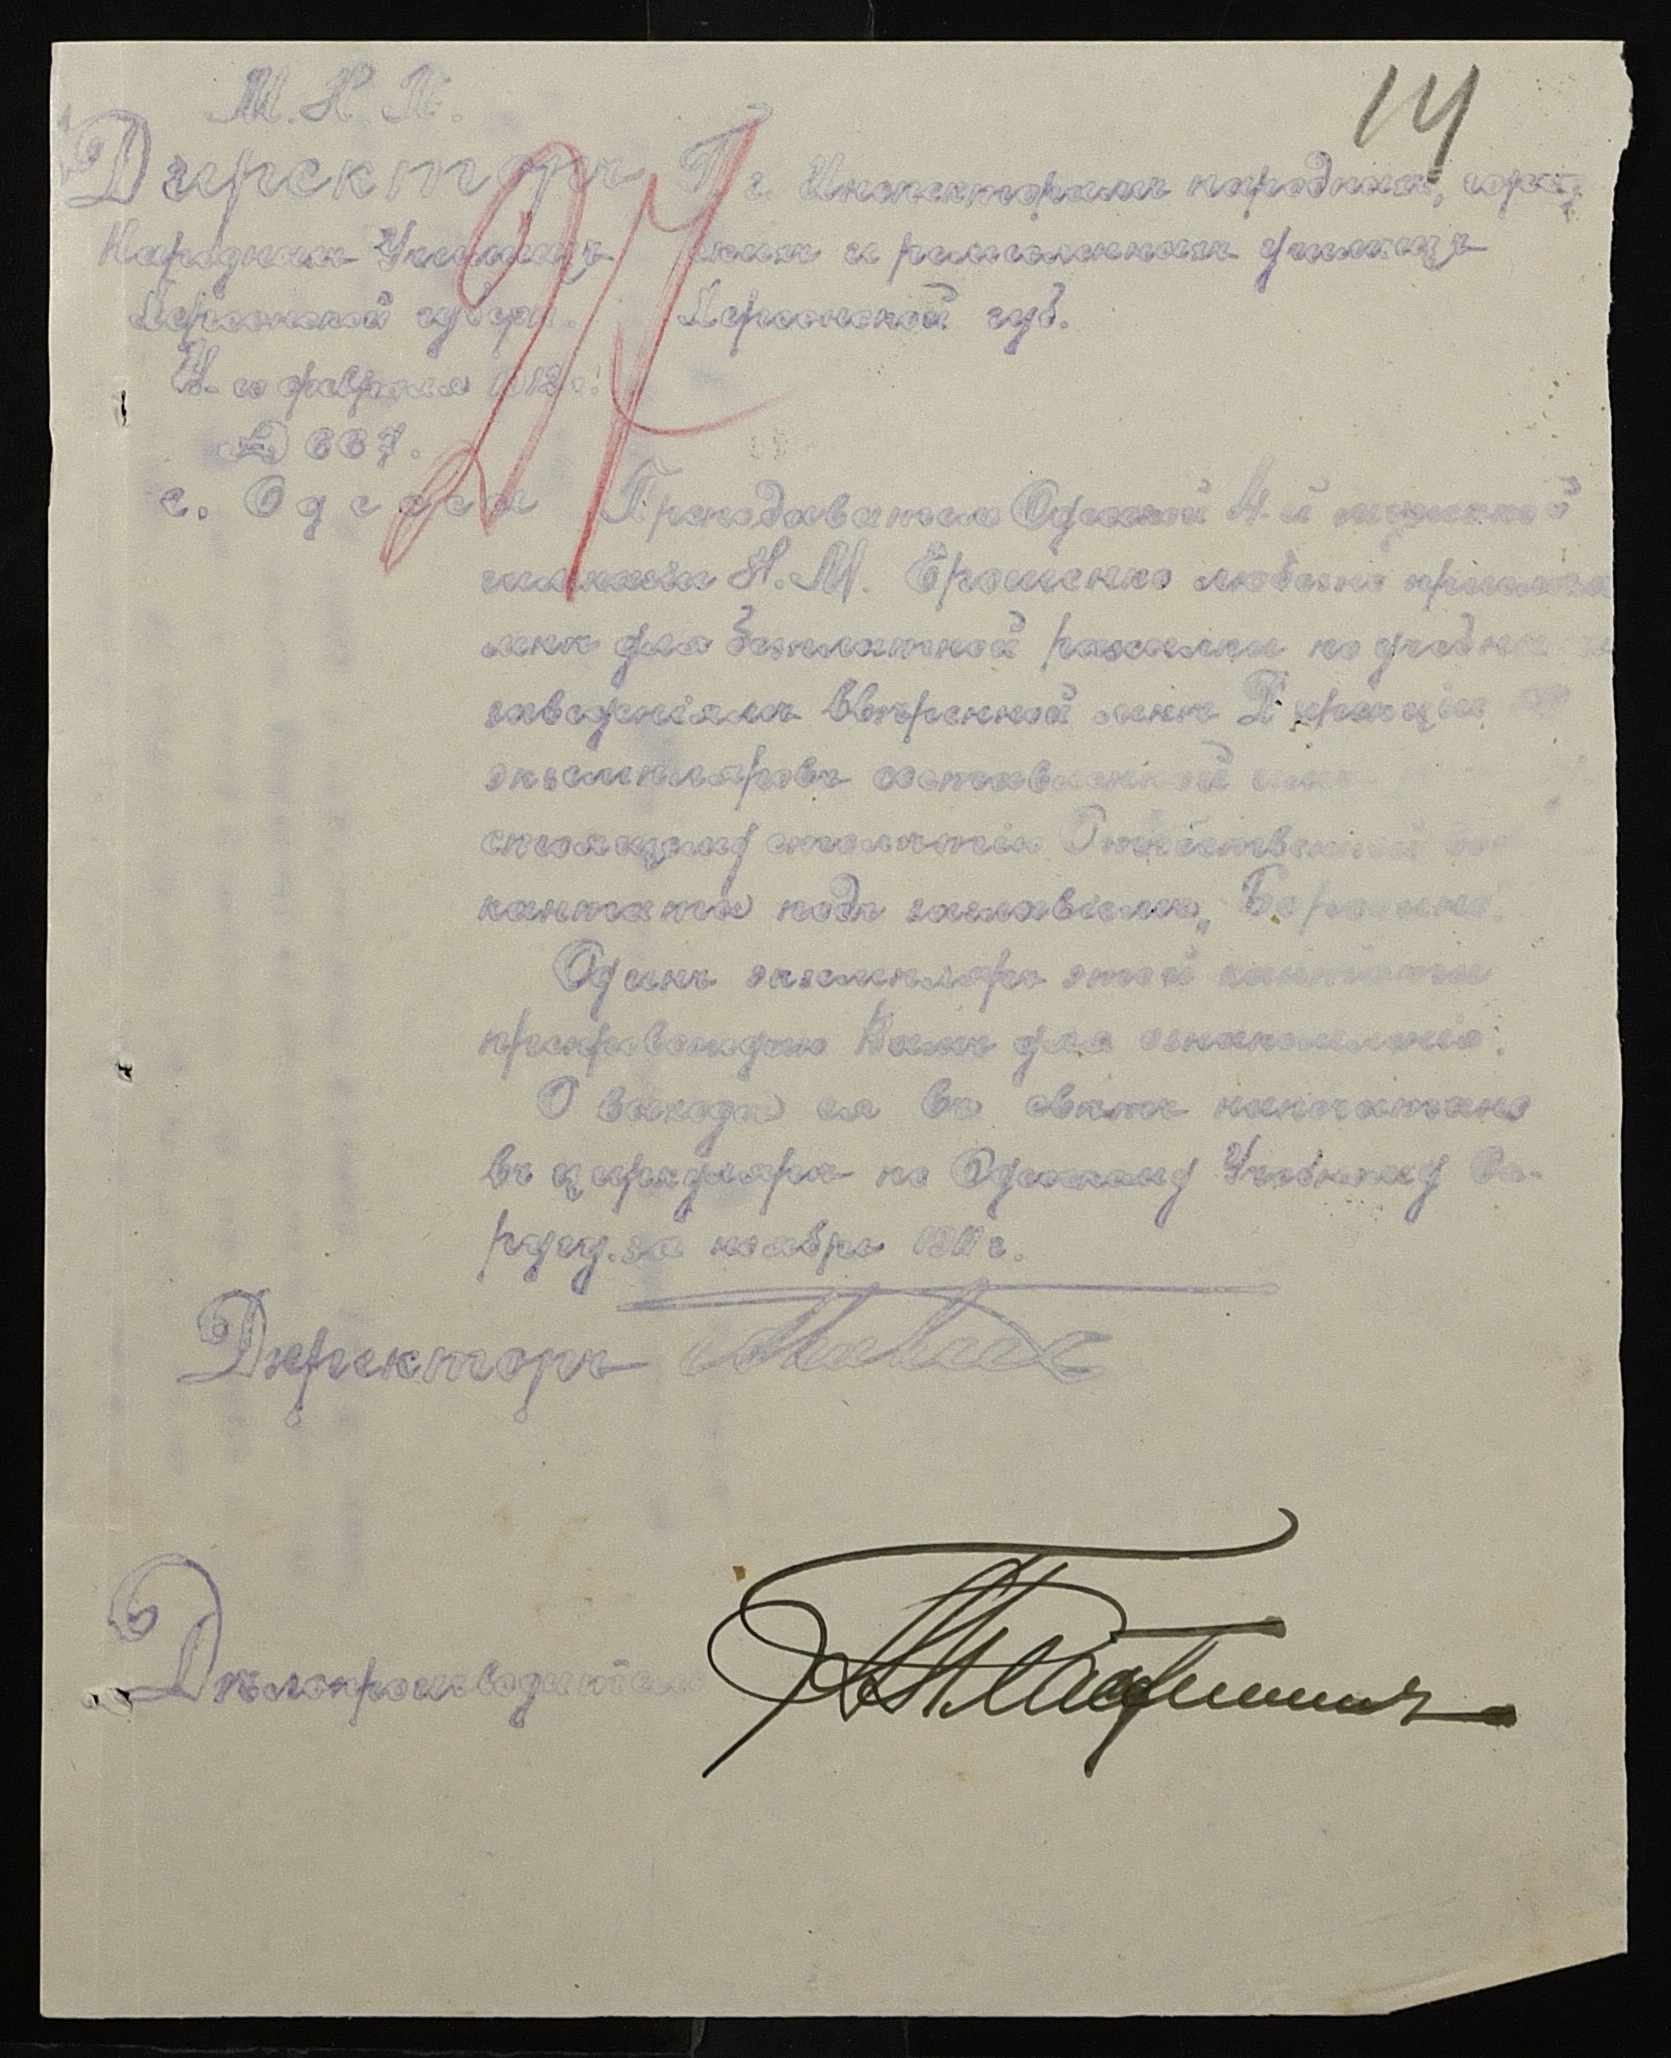 14
М. Н. П.
Директоръ
Народныхъ Училищъ
Херсонской губерн.
февраля 1912 г.
№ 667.
г. Одесса
24
Г. г. Инспекторамъ народныхъ, город
скихъ и ремесленныхъ училищъ
Херсонской губ.
Преподаватель Одесской 4-й мужской
гимназіи Н. М. Ерошенко любезно прислалъ
мнѣ для безплатной разсылки по учебнымъ
заведеніямъ ввѣренной мнѣ Дирекціи
экземпляровъ составленной имъ
столѣтію Отечественной
кантаты подъ заглавіемъ „Бородино".
Одинъ экземпляръ этой кантаты
препровождаю Вамъ для ознакомленія.
О выходѣ ея въ свѣтъ напечатано
въ циркулярѣ по Одесскому Учебному Ок-
ругу за ноябрь 1911 г.
Директоръ
Дѣлопроизводитель